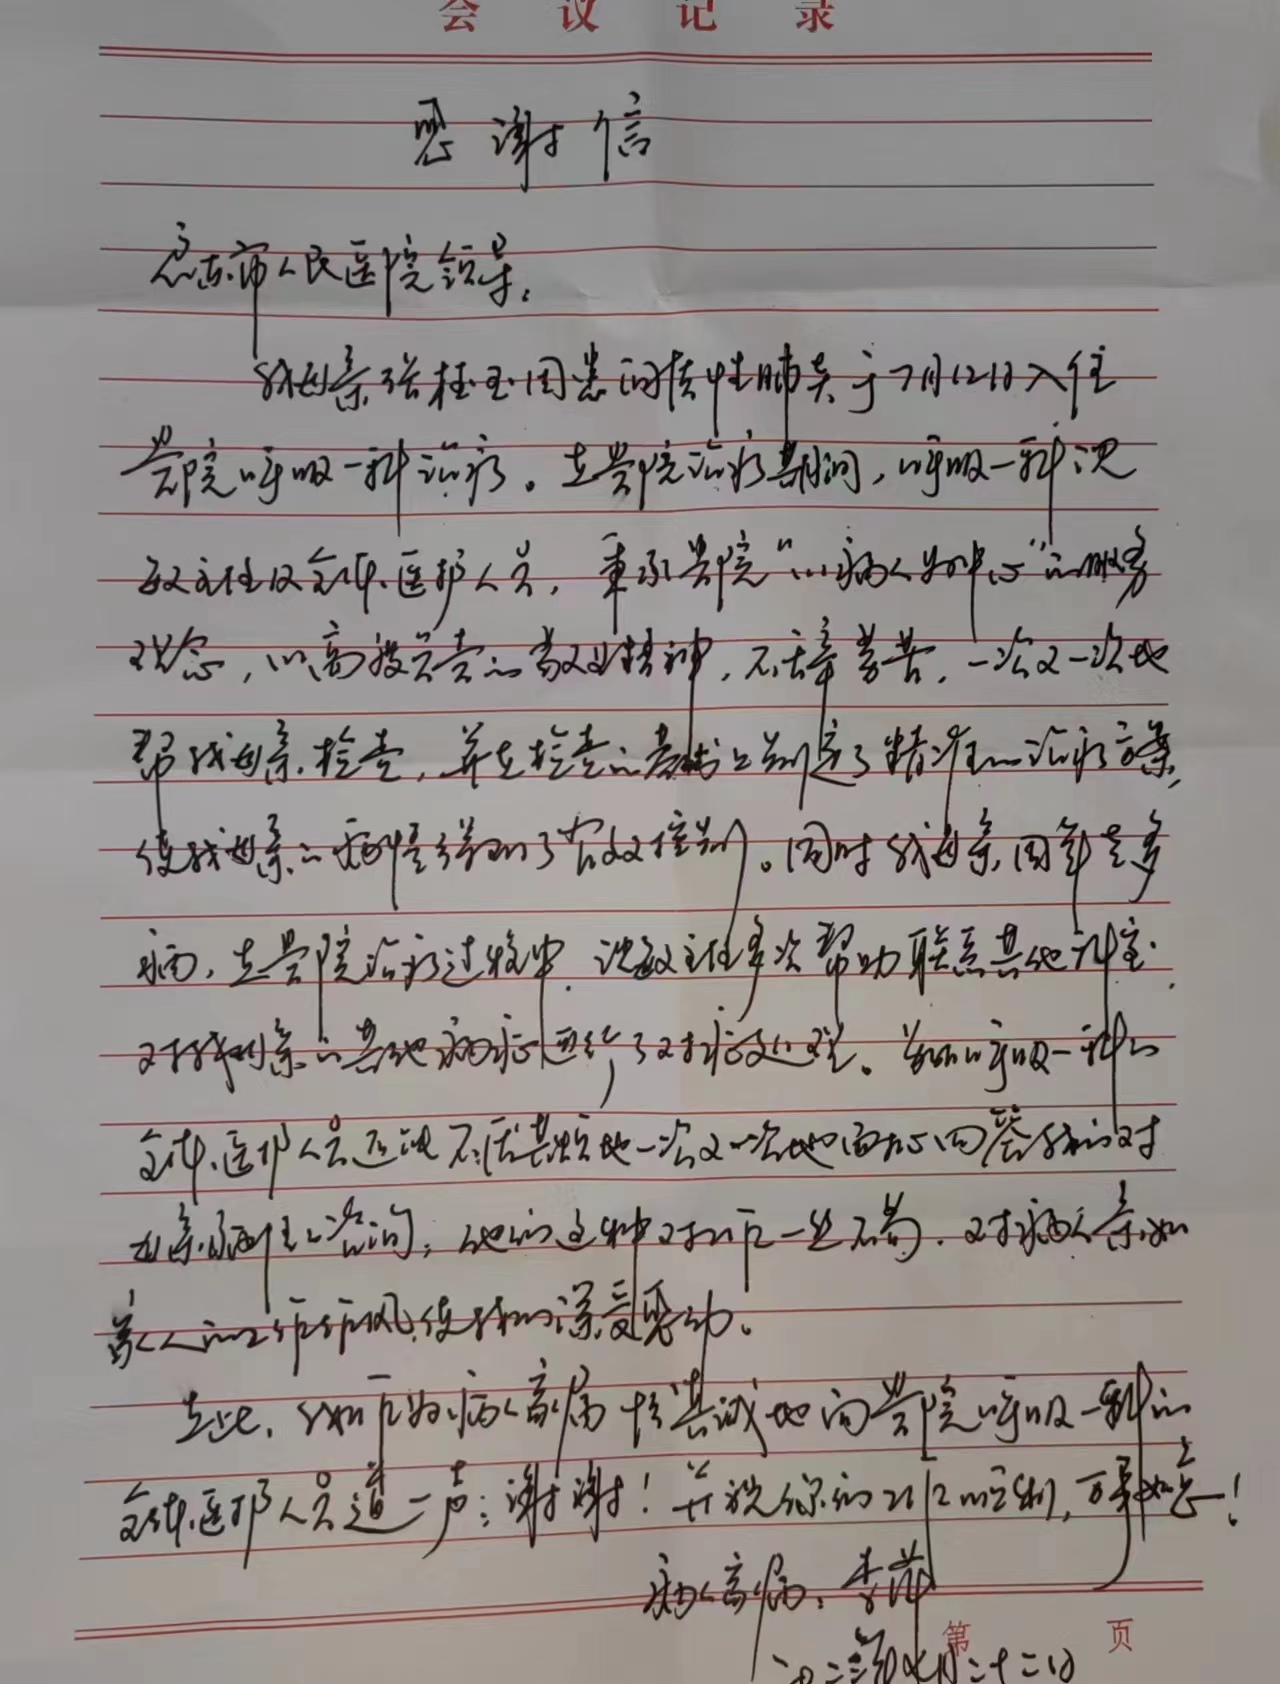 会议记录
感谢信
启东市人民医院领导:
我母亲张桂玉因患间质性肺炎于7月12日入住
贵院呼吸一科治疗。在贵院治疗期间,呼吸一科沈
敏主任及全体医护人员,秉承贵院“以病人为中心”的服务
观念,以高度负责的敬业精神,不辞劳苦,一次又一次地
帮我母亲检查,并在检查的基础上制定了精准的治疗方案,
使我母亲的病情得到了有效控制。同时我母亲因年老多
病,在贵院治疗过程中,沈敏主任多次帮助联系其他科室
对我母亲的其他病症进行了对症处理。 呼吸一科的
全体医护人员还不厌其烦地一次又一次地耐心回答我们对
母亲病情的咨询,他们这种对工作一丝不苟,对病人亲如
家人的工作作风使我们深受感动。
在此,我们作为病人家属 真诚地向贵院呼吸一科的
全体医护人员道一声:谢谢!并祝你们工作顺利,万事如意!
病人家属:李萍
二〇二三年七月二十二日
第 页